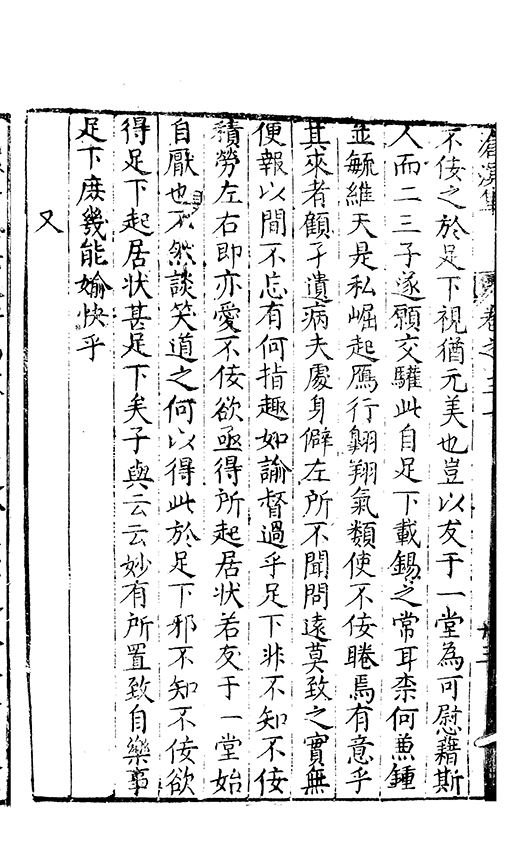 不佞之於足下視猶元美也豈以友于一堂為可慰藉斯
人而二三子遂願交驩此自足下載錫之常耳柰何兼鍾
並毓維天是私崛起鴈行翺翔氣類使不佞睠焉有意乎
其來者顧孑遺病夫處身僻左所不聞問遠莫致之實無
便報以間不忘有何指趣如諭督過乎足下非不知不佞
積勞左右即亦愛不佞欲亟得所起居狀若友于一堂始
自厭也不然談笑道之何以得此於足下邪不知不佞欲
得足下起居狀甚足下矣子與云云妙有所置致自樂事
足下庶幾能媮快乎
又